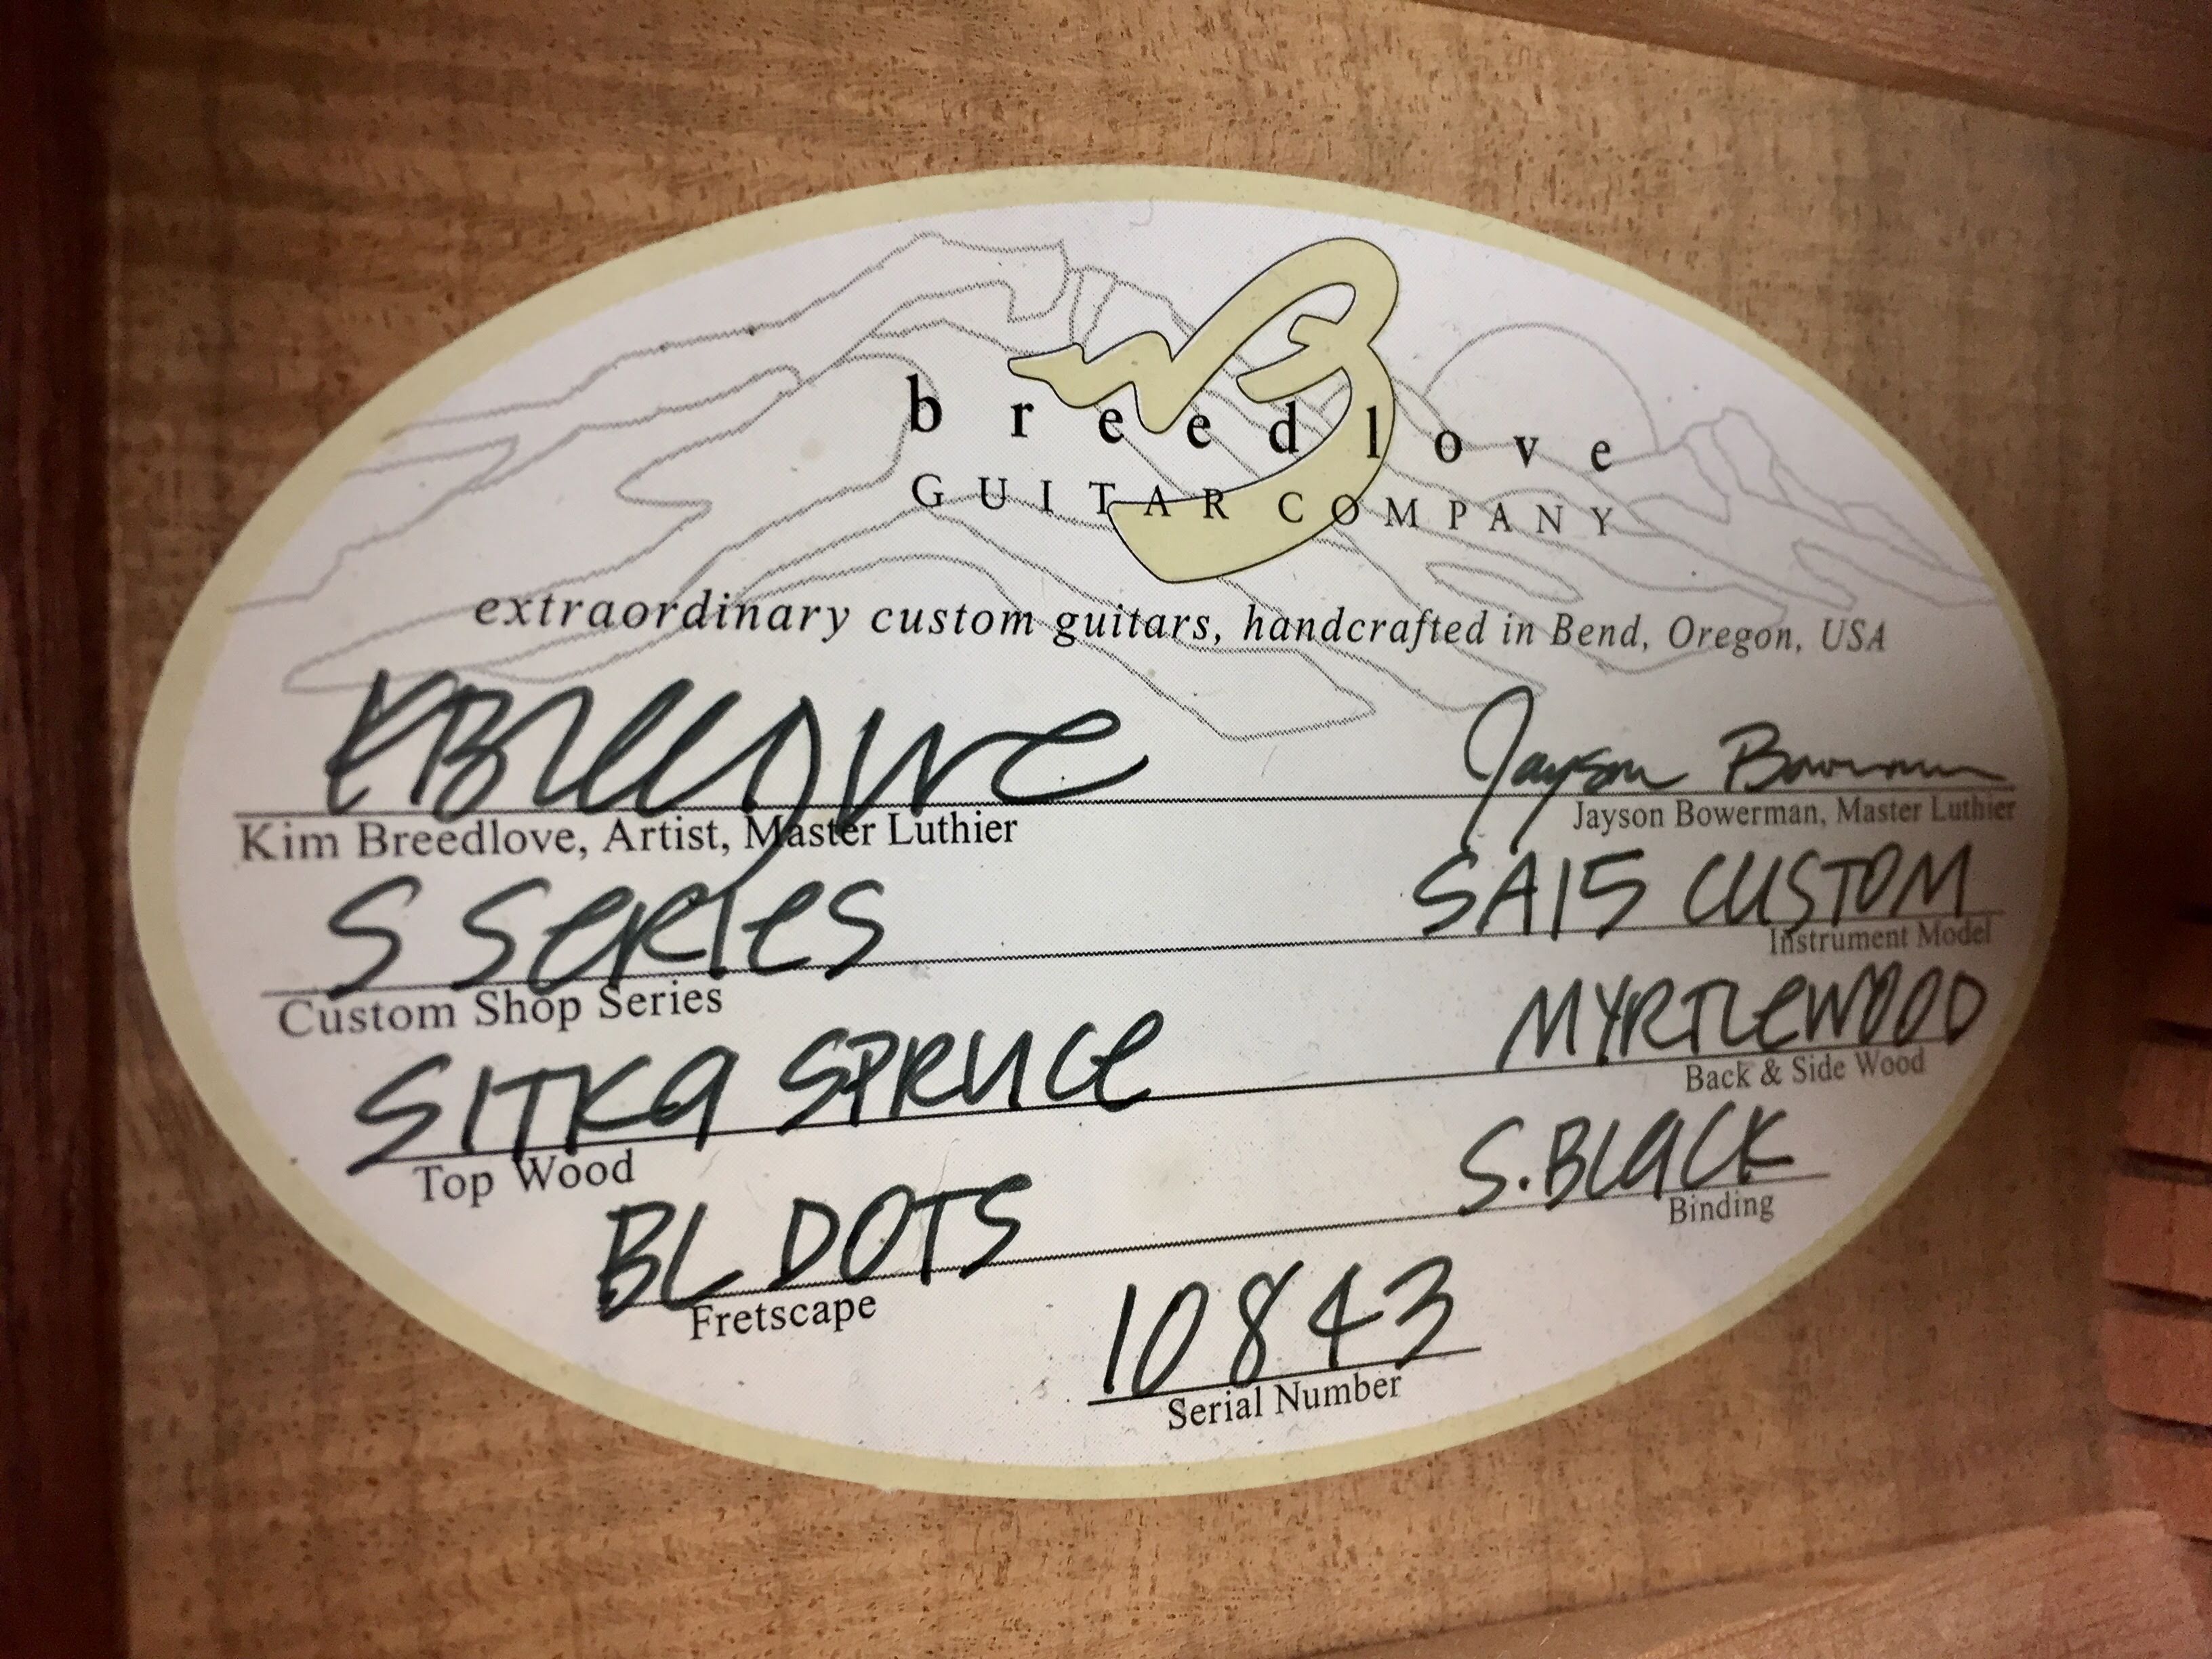 breedlove
GUITAR COMPANY
extraordinary custom guitars, handcrafted in Bend, Oregon, USA
KBreedlove Jayson Bowerman
Kim Breedlove, Artist, Master Luthier Jayson Bowerman, Master Luthier
S Series SA15 CUSTOM
Custom Shop Series Instrument Model
SITKa SPRuce MYRTLeWOOD
Top Wood Back & Side Wood
BL DOTS S.BLaCK
Fretscape Binding
10843
Serial Number